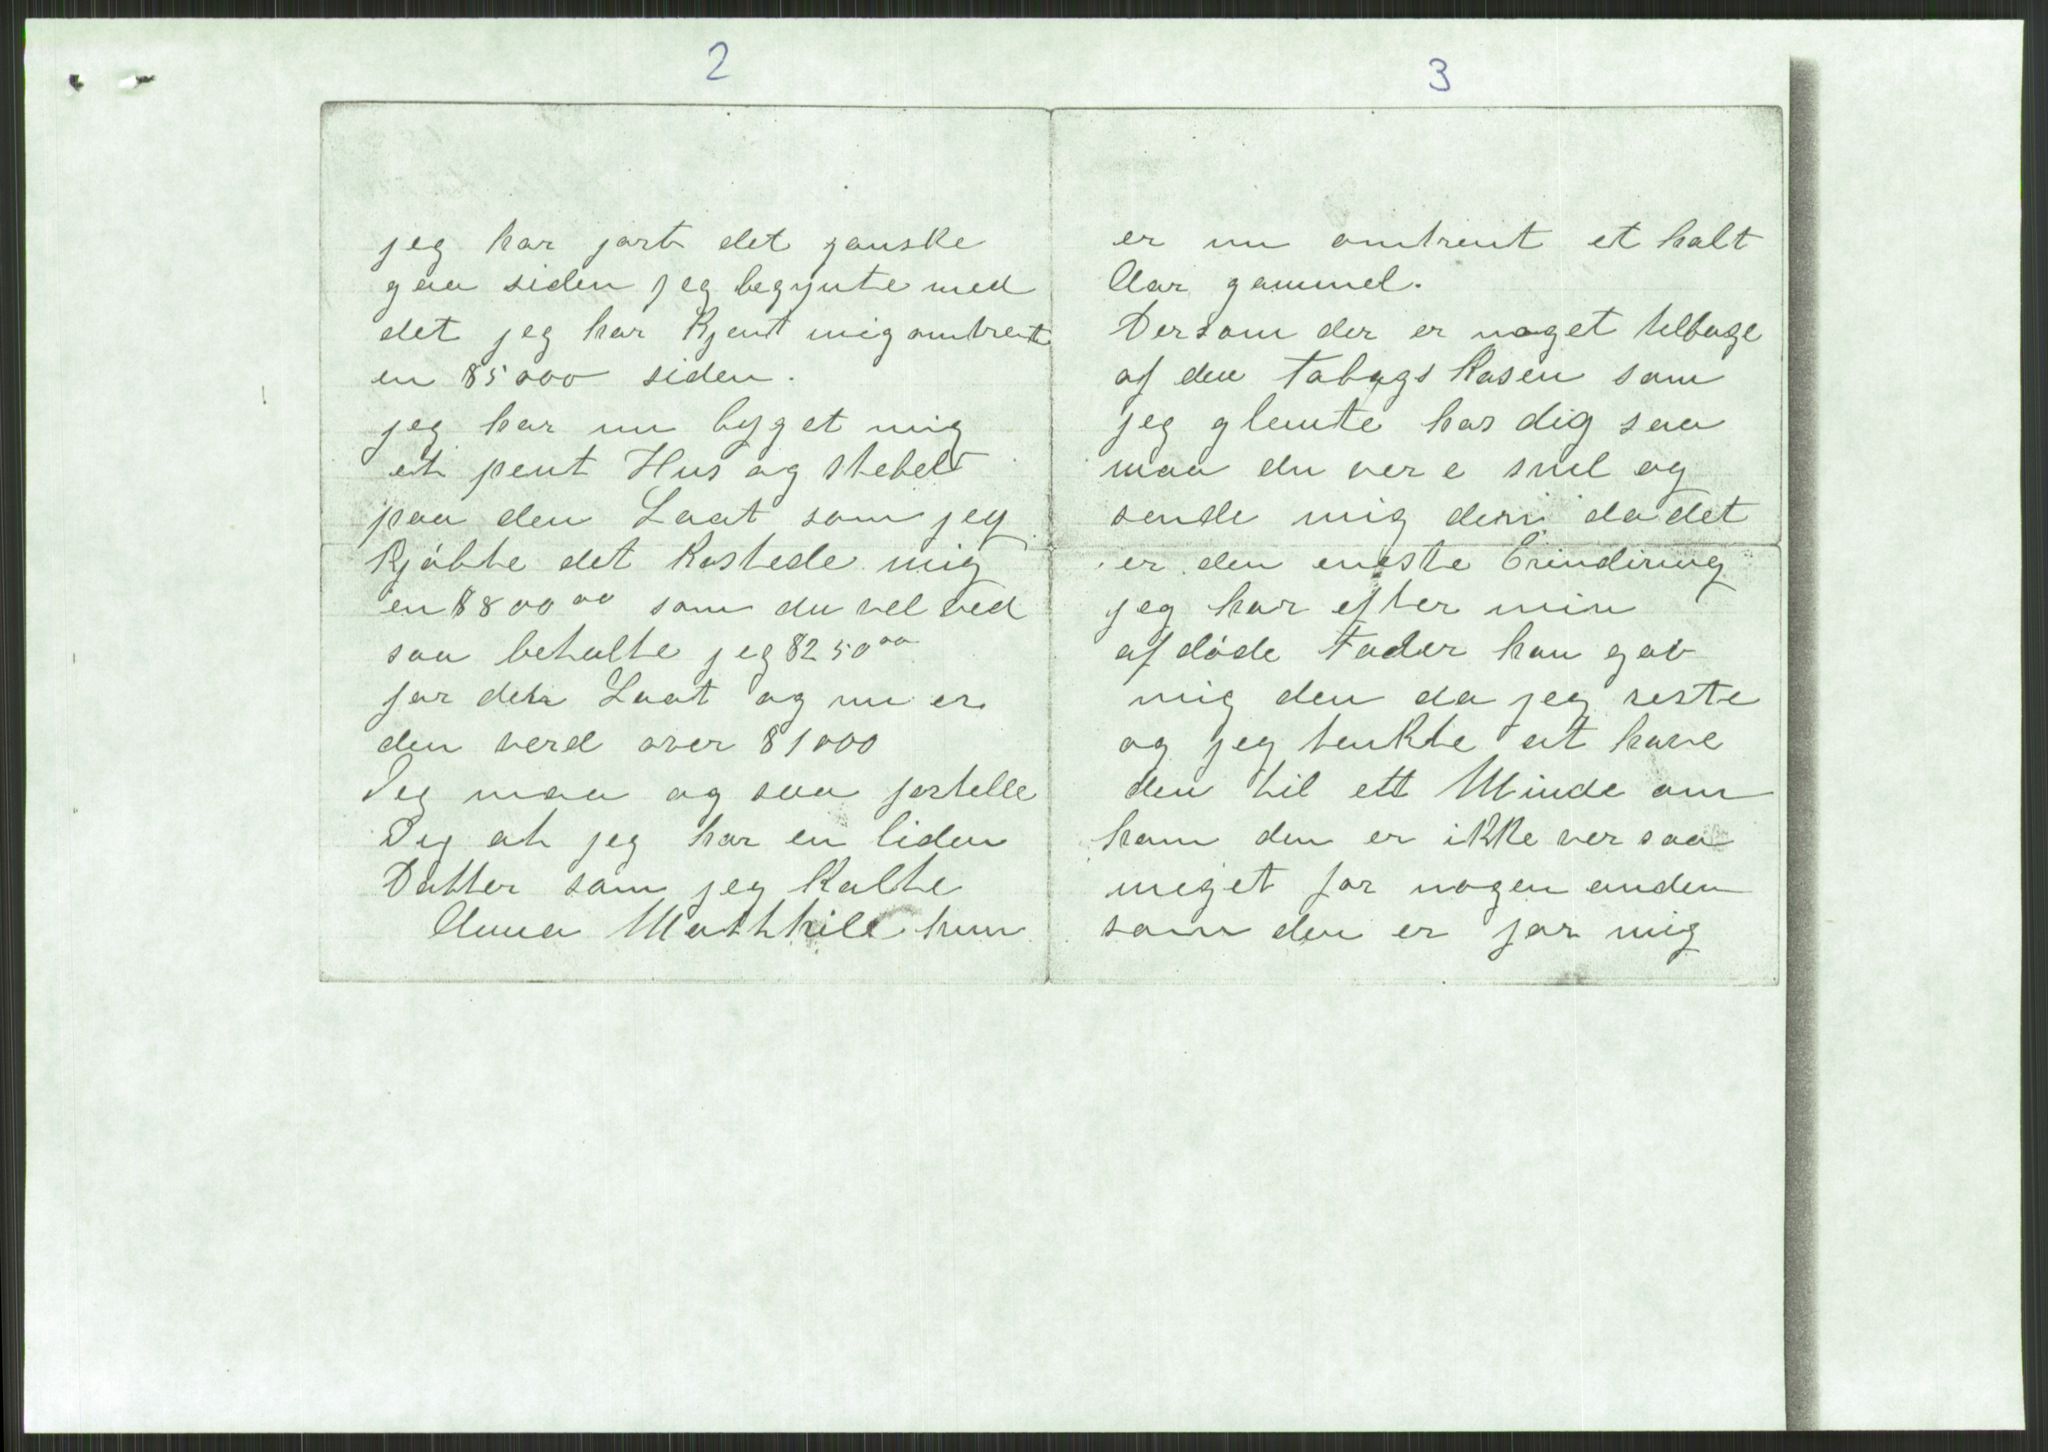 2
jeg har jort det ganske
gaa siden jeg begynte med
det jeg har Kjent mig omtrent
en $5000 siden.
jeg har nu byget mig
et pent Hus og stebelt
paa den Laat som jeg
Kjöbte det Kostede mig
en $800 00 som du vel ved
saa behalte jeg $250 00
for den Laat og nu er
den verd over $1000
Jeg maa og saa fortelle
Dig at jeg har en liden
Datter som jeg Kalte
Anna Mathhile hun
3
er nu omtrent et halt
Aar gammel.
Dersom der er noget tilbage
af den Tobags Kasen som
jeg glemte hos dig saa
maa du vere snil og
sende mig den da det
er den eneste Erindiring
jeg har efter min
afdöde Fader han gav
mig den da jeg reste
og jeg tenkte at have
den til ett Minde om
ham den er ikke ver saa
meget for nogen anden
som den er for mig